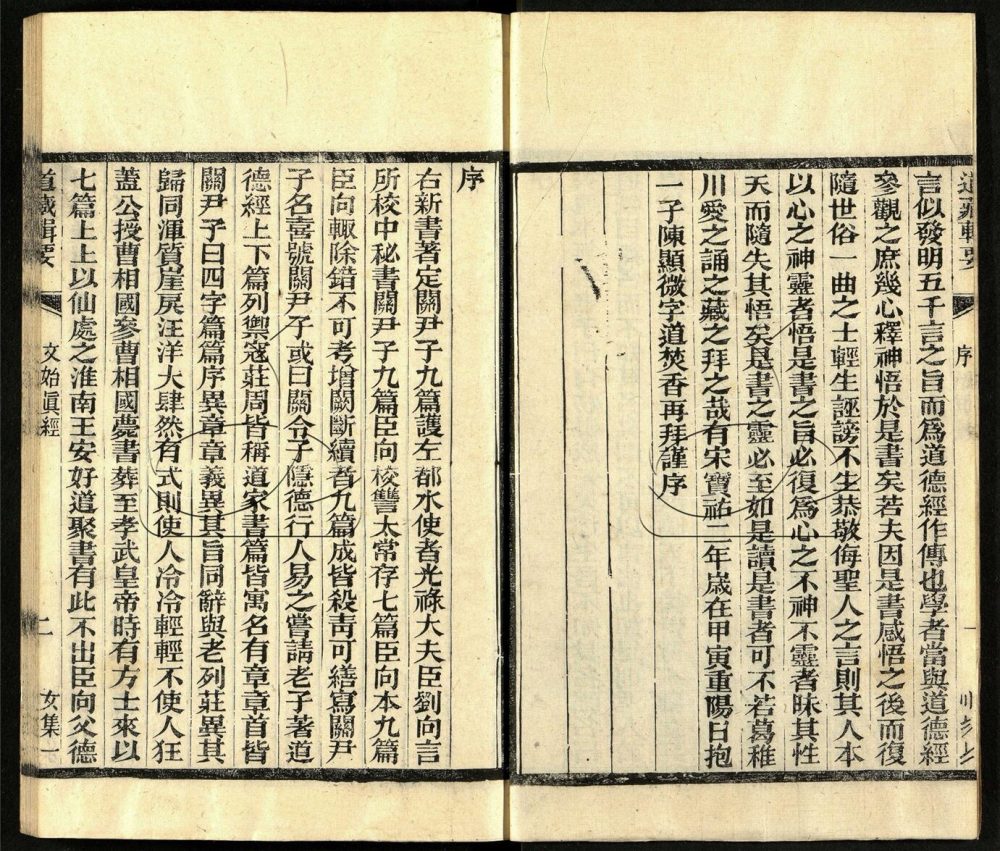 道藏輯要 序
言似發明五千言之旨而爲道德經作傳也學者當與道德經
參觀之庶幾心釋神悟於是書矣若夫因是書感悟之後而復
隨世俗一曲之士輕生誣謗不生恭敬侮聖人之言則其人本
以心之神靈者悟是書之旨必復爲心之不神不靈者昧其性
天而隨失其悟矣是書之靈必至如是讀是書者可不若葛稚
川愛之誦之藏之拜之哉有宋寶祐二年歲在甲寅重陽日抱
一子陳顯微字道焚香再拜謹序
序
右新書著定關尹子九篇護左都水使者光祿大夫臣劉向言
所校中秘書關尹子九篇臣向校讐太常存七篇臣向本九篇
臣向輙除錯不可考增闕斷續者九篇成皆殺靑可繕寫關尹
子名喜號關尹子或曰關令子隱德行人易之嘗請老子著道
德經上下篇列禦寇莊周皆稱道家書篇皆寓名有章章首皆
關尹子曰四字篇篇序異章章義異其旨同辭與老列莊異其
歸同渾質崖戾汪洋大肆然有式則使人冷冷輕輕不使人狂
蓋公授曹相國參曹相國薨書葬至孝武皇帝時有方士來以
七篇上上以仙處之淮南王安好道聚書有此不出臣向父德
道藏輯要 文始眞經 二 女集一